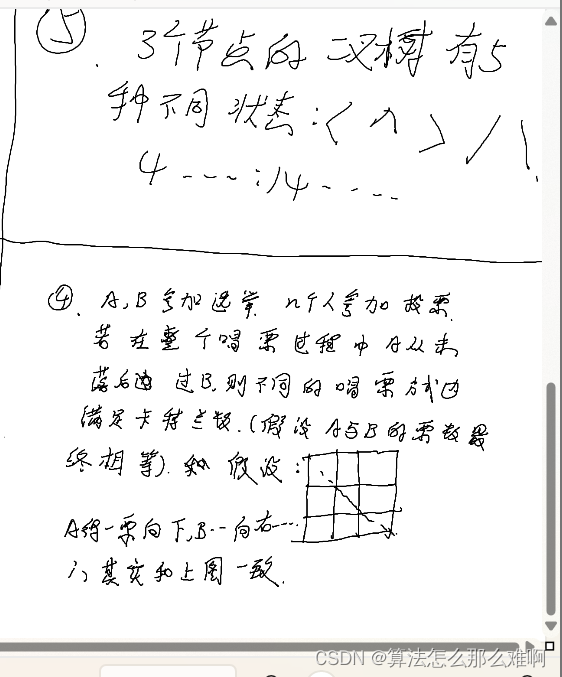 ⑤. 3个节点的二叉树有5
种不同状态:< ∧ > / \.
4 ----:14----
④. A,B参加选举 n个人参加投票.
若在整个唱票过程中A从未
落后过B,则不同的唱票方式
满足卡特兰数.(假设A与B的票数最
终相等). 如 假设:
A得一票向下,B--向右----
∴其实和上图一致.
CSDN @算法怎么那么难啊